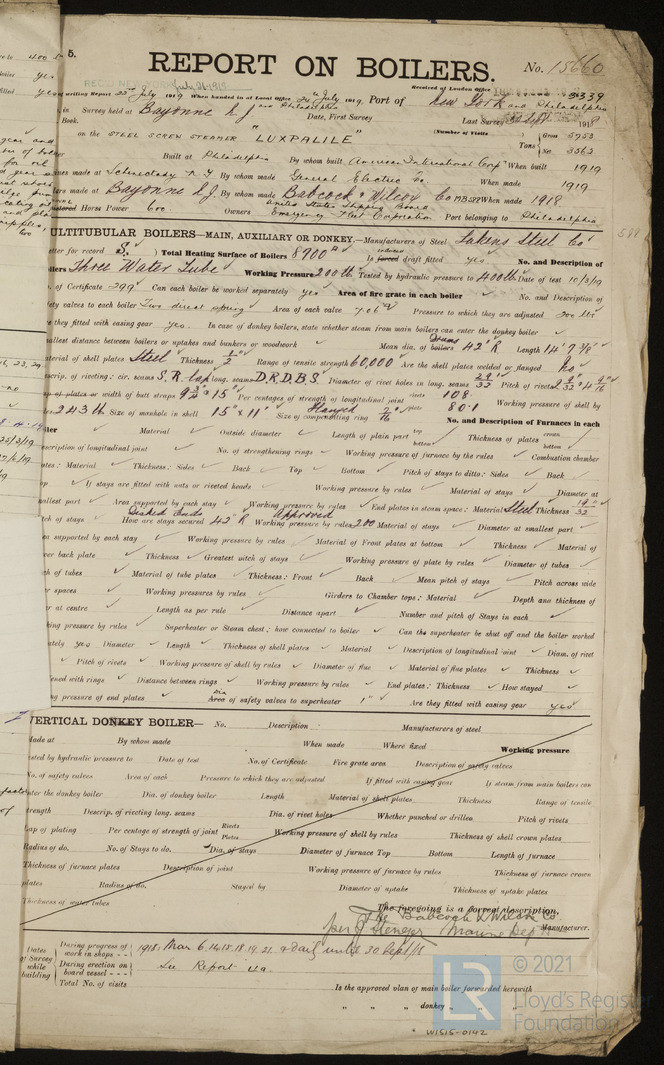 5.
REPORT ON BOILERS.
No. 15660
Received at London Office
writing Report 22nd July 1919 When handed in at Local Office 24 July 1919 Port of New York and Philadelphia
in Survey held at Bayonne N.J. and Philadelphia Date, First Survey Last Survey 30 Sept 1918
Book. (Number of Visits)
on the STEEL SCREW STEAMER "LUXPALILE" Tons Gross 5753
Net 3563
Built at Philadelphia By whom built American International Corp When built 1919
made at Schenectady N.Y. By whom made General Electric Co When made 1919
made at Bayonne N.J. By whom made Babcock & Wilcox Co When made 1918
Horse Power 600 Owners United States Shipping Board Emergency Fleet Corporation Port belonging to Philadelphia
MULTITUBULAR BOILERS—MAIN, AUXILIARY OR DONKEY.—Manufacturers of Steel Lukens Steel Co
for record S. Total Heating Surface of Boilers 8700 Is forced draft fitted yes No. and Description of
Boilers Three Water Tube Working Pressure 200 lb Tested by hydraulic pressure to 400 lb Date of test 10/3/19
of Certificate 299 Can each boiler be worked separately yes Area of fire grate in each boiler No. and Description of
valves to each boiler Two direct spring Area of each valve 7.06 Pressure to which they are adjusted 200 lb
they fitted with easing gear yes. In case of donkey boilers, state whether steam from main boilers can enter the donkey boiler
smallest distance between boilers or uptakes and bunkers or woodwork Mean dia. of boilers Drums 42" R Length 14' 9 3/8"
Material of shell plates Steel Thickness 1/2" Range of tensile strength 60,000 Are the shell plates welded or flanged No
Descrip. of riveting: cir. seams S.R. lap long. seams D.R.D.B.S. Diameter of rivet holes in long. seams 29/32 Pitch of rivets
or width of butt straps 9 3/4" & 15" Per centages of strength of longitudinal joint 108. 80.1 Working pressure of shell by
243 lb Size of manhole in shell 15" x 11" Size of compensating ring Flanged No. and Description of Furnaces in each
Material Outside diameter Length of plain part top bottom Thickness of plates crown bottom
Description of longitudinal joint No. of strengthening rings Working pressure of furnace by the rules Combustion chamber
plates: Material Thickness: Sides Back Top Bottom Pitch of stays to ditto: Sides Back
If stays are fitted with nuts or riveted heads Working pressure by rules Material of stays Diameter at
smallest part Area supported by each stay Working pressure by rules End plates in steam space: Material Steel Thickness 19/32"
Pitch of stays How are stays secured Dished Ends 42" R Working pressure by rules Approved 200 Material of stays Diameter at smallest part
Area supported by each stay Working pressure by rules Material of Front plates at bottom Thickness Material of
Lower back plate Thickness Greatest pitch of stays Working pressure of plate by rules Diameter of tubes
Pitch of tubes Material of tube plates Thickness: Front Back Mean pitch of stays Pitch across wide
water spaces Working pressures by rules Girders to Chamber tops: Material Depth and thickness of
at centre Length as per rule Distance apart Number and pitch of Stays in each
Working pressure by rules Superheater or Steam chest; how connected to boiler Can the superheater be shut off and the boiler worked
separately yes Diameter Length Thickness of shell plates Material Description of longitudinal joint Diam. of rivet
Pitch of rivets Working pressure of shell by rules Diameter of flue Material of flue plates Thickness
with rings Distance between rings Working pressure by rules End plates: Thickness How stayed
Working pressure of end plates Area of safety valves to superheater 1" Are they fitted with easing gear yes
VERTICAL DONKEY BOILER— No. Description Manufacturers of steel
Made at By whom made When made Where fixed Working pressure
tested by hydraulic pressure to Date of test No. of Certificate Fire grate area Description of safety valves
No. of safety valves Area of each Pressure to which they are adjusted If fitted with easing gear If steam from main boilers can
enter the donkey boiler Dia. of donkey boiler Length Material of shell plates Thickness Range of tensile
strength Descrip. of riveting long. seams Dia. of rivet holes Whether punched or drilled Pitch of rivets
Lap of plating Per centage of strength of joint Rivets Plates Working pressure of shell by rules Thickness of shell crown plates
Radius of do. No. of Stays to do. Dia. of stays Diameter of furnace Top Bottom Length of furnace
Thickness of furnace plates Description of joint Working pressure of furnace by rules Thickness of furnace crown
plates Radius of do. Stayed by Diameter of uptake Thickness of uptake plates
Thickness of water tubes
The foregoing is a correct description,
The Babcock & Wilcox Co.
Marine Dept. Manufacturer.
Dates of Survey while building
During progress of work in shops - - 1918. Mar 6. 14. 15. 18. 19. 21. & daily until 30 Sept/18
During erection on board vessel - - - See Report
Total No. of visits
Is the approved plan of main boiler forwarded herewith
" " " donkey " "
© 2021
LR
Lloyd's Register
Foundation
W1515-0142